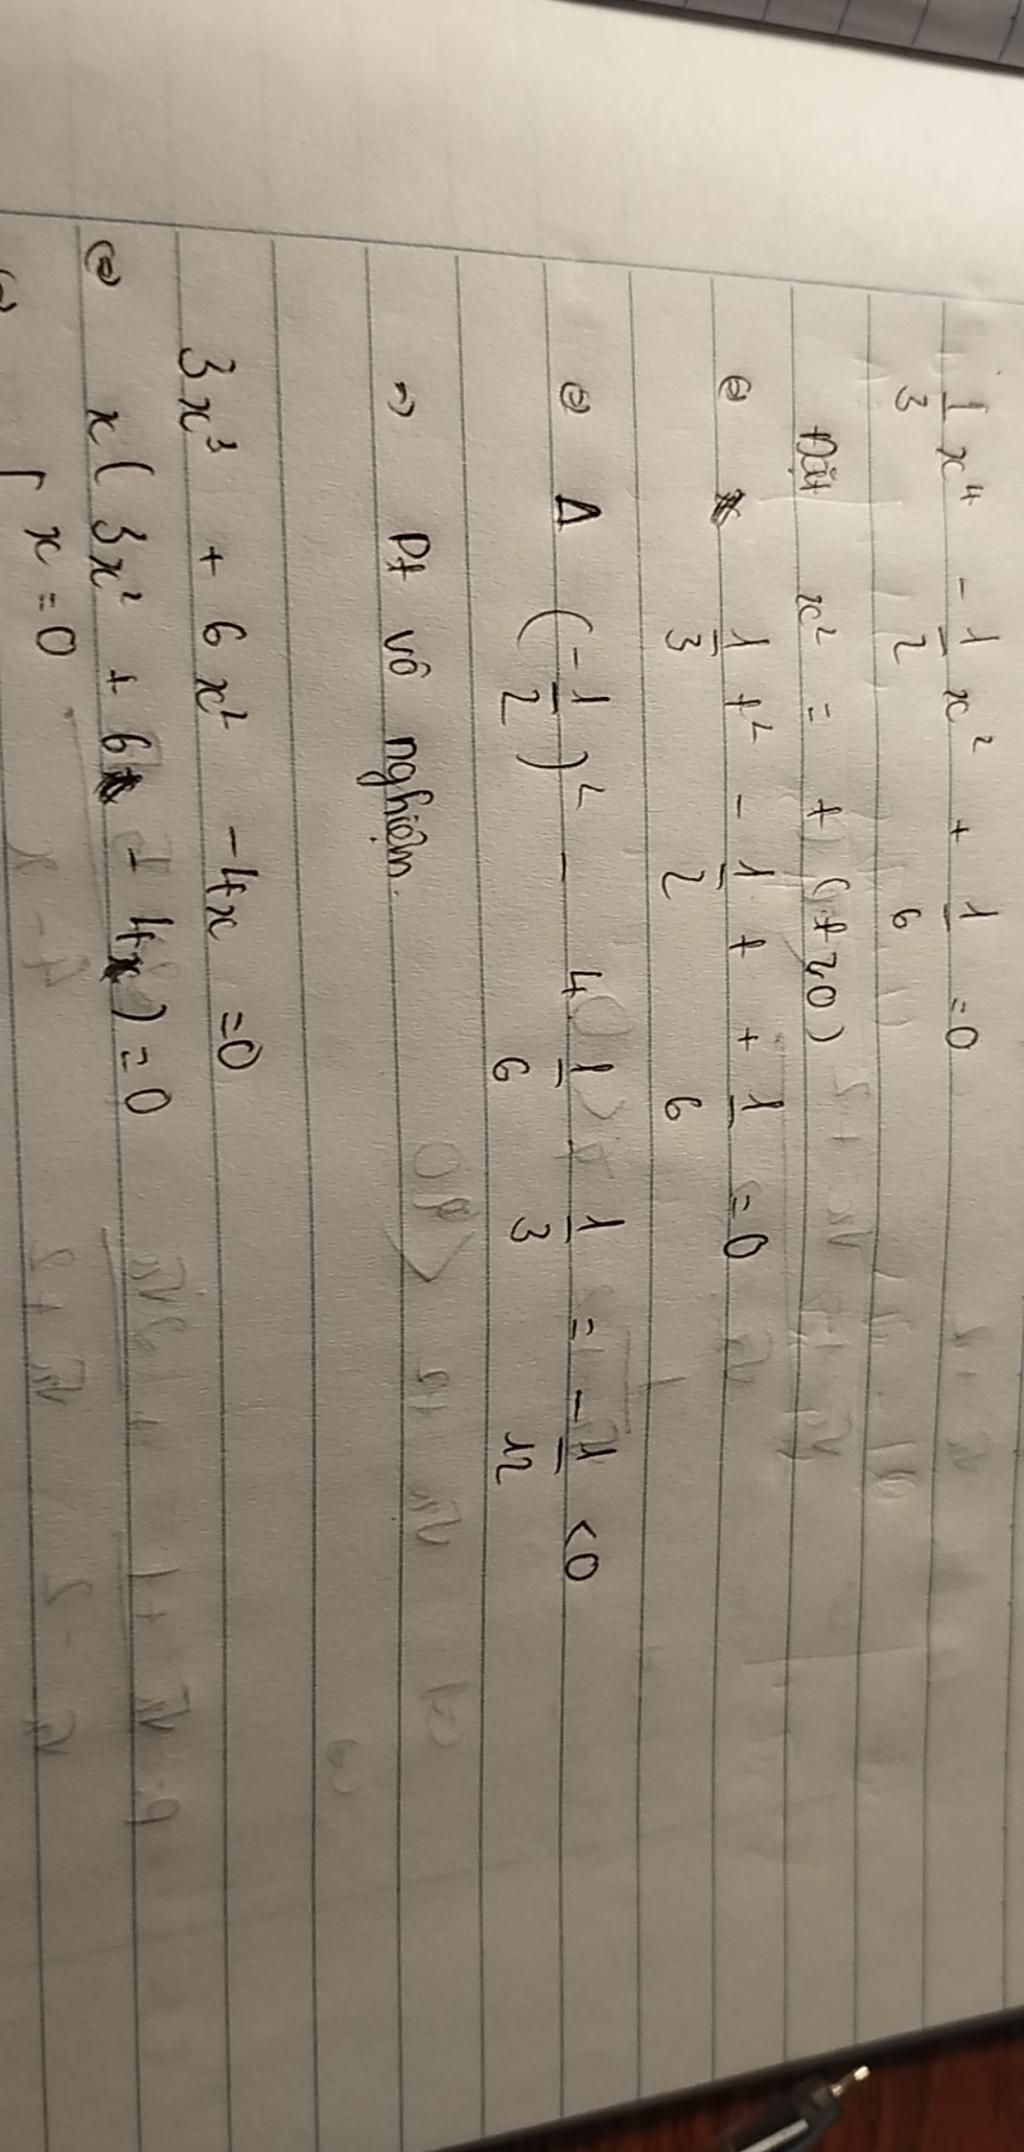 1/3 x⁴ - 1/2 x² + 1/6 = 0
Đặt x² = t (t ≥ 0)
⇔ 1/3 t² - 1/2 t + 1/6 = 0
⇔ Δ (-1/2)² - 4 1/6 1/3 = -1/12 < 0
=> Pt vô nghiệm.
3x³ + 6x² - 4x = 0
⇔ x(3x² + 6x - 4) = 0
x = 0